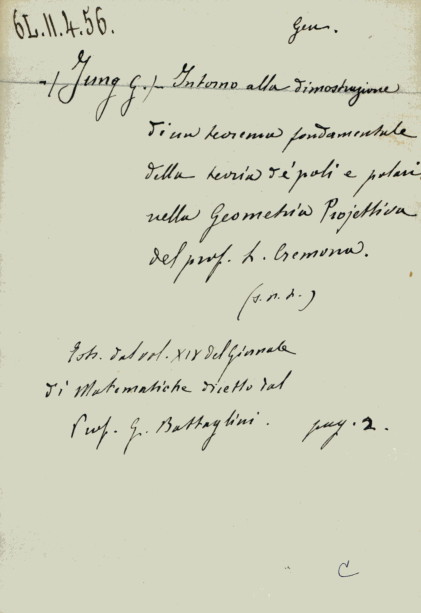 6L.II.4.56.
Gen.
-(Jung G.)- Intorno alla dimostrazione
di un teorema fondamentale
della teoria de' poli e polari,
nella Geometria Projettiva
del prof. L. Cremona.
(s. n. t.)
Estr. dal vol. XIV del Giornale
di Matematiche diretto dal
Prof. G. Battaglini. pag. 2.
C